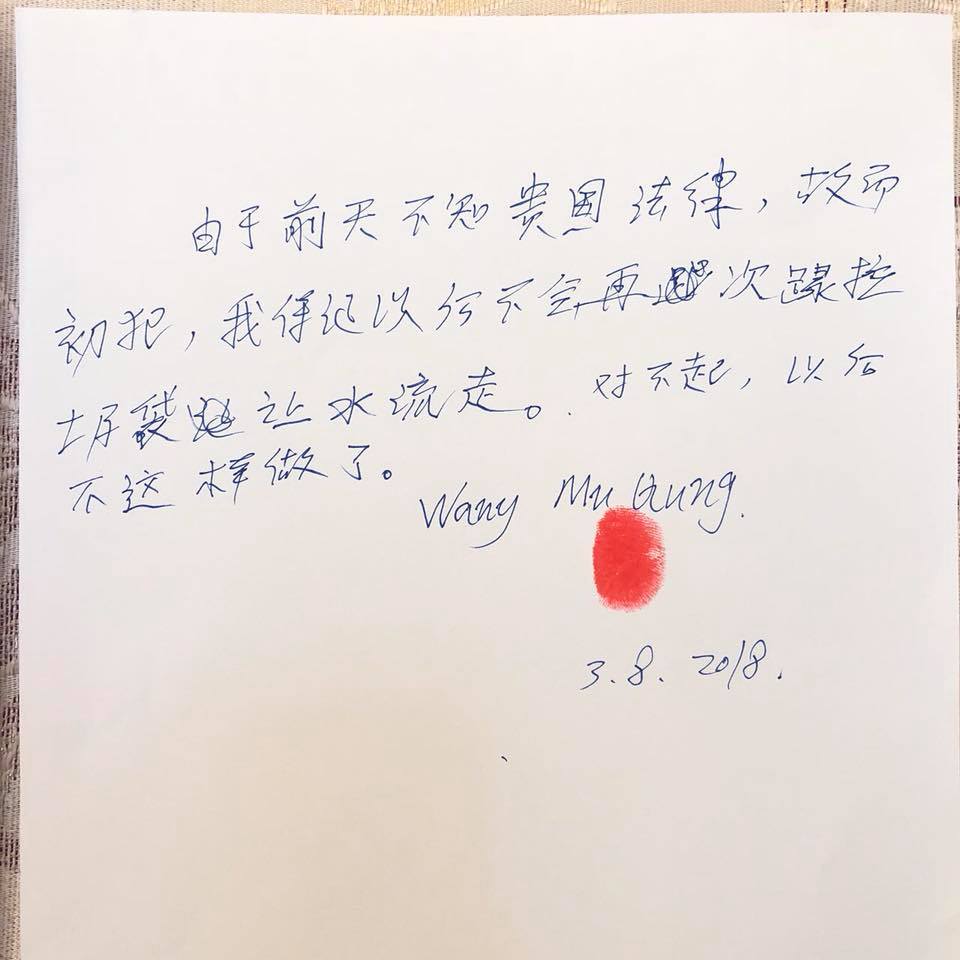 由于前天不知贵国法律，故而
初犯，我保证以后不会再次踩垃
圾袋让水流走。对不起，以后
不这样做了。
Wang
3.8.2018.